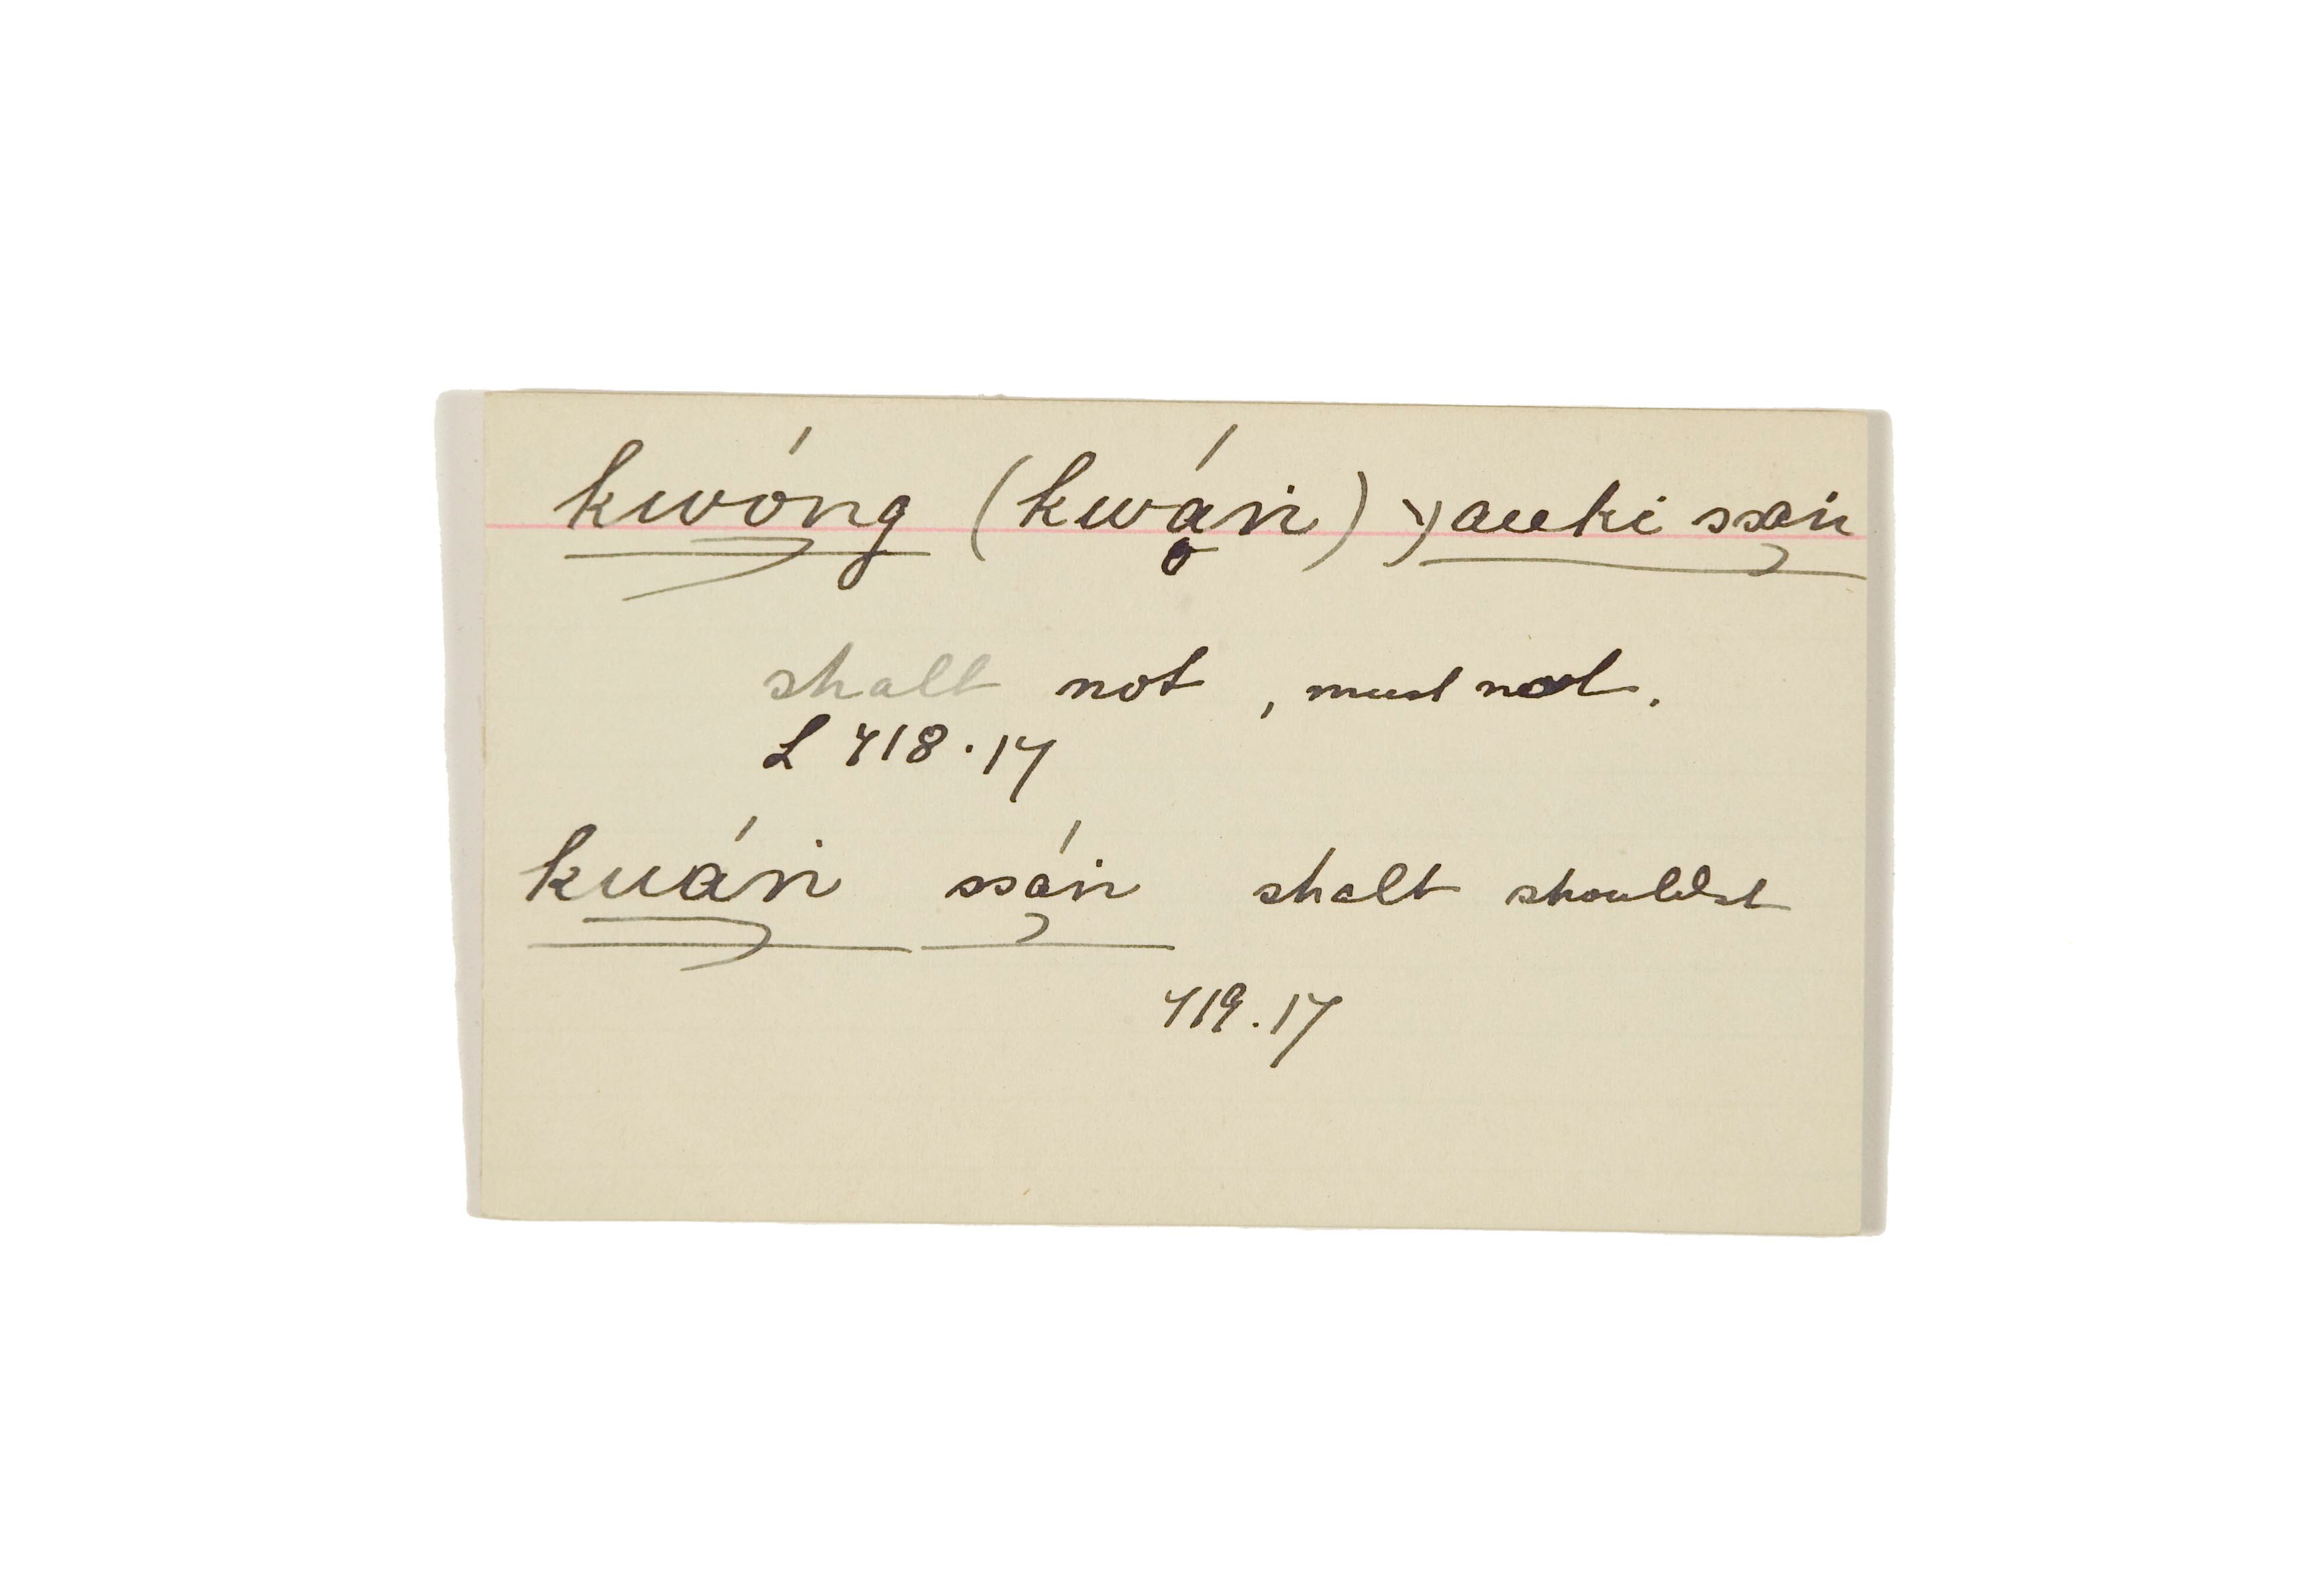 kwóng (kwą́ṅ) )auki ssaṅ
shalt not, must not.
L 718.17
kuáṅ ssáṅ shalt shouldst
719.17